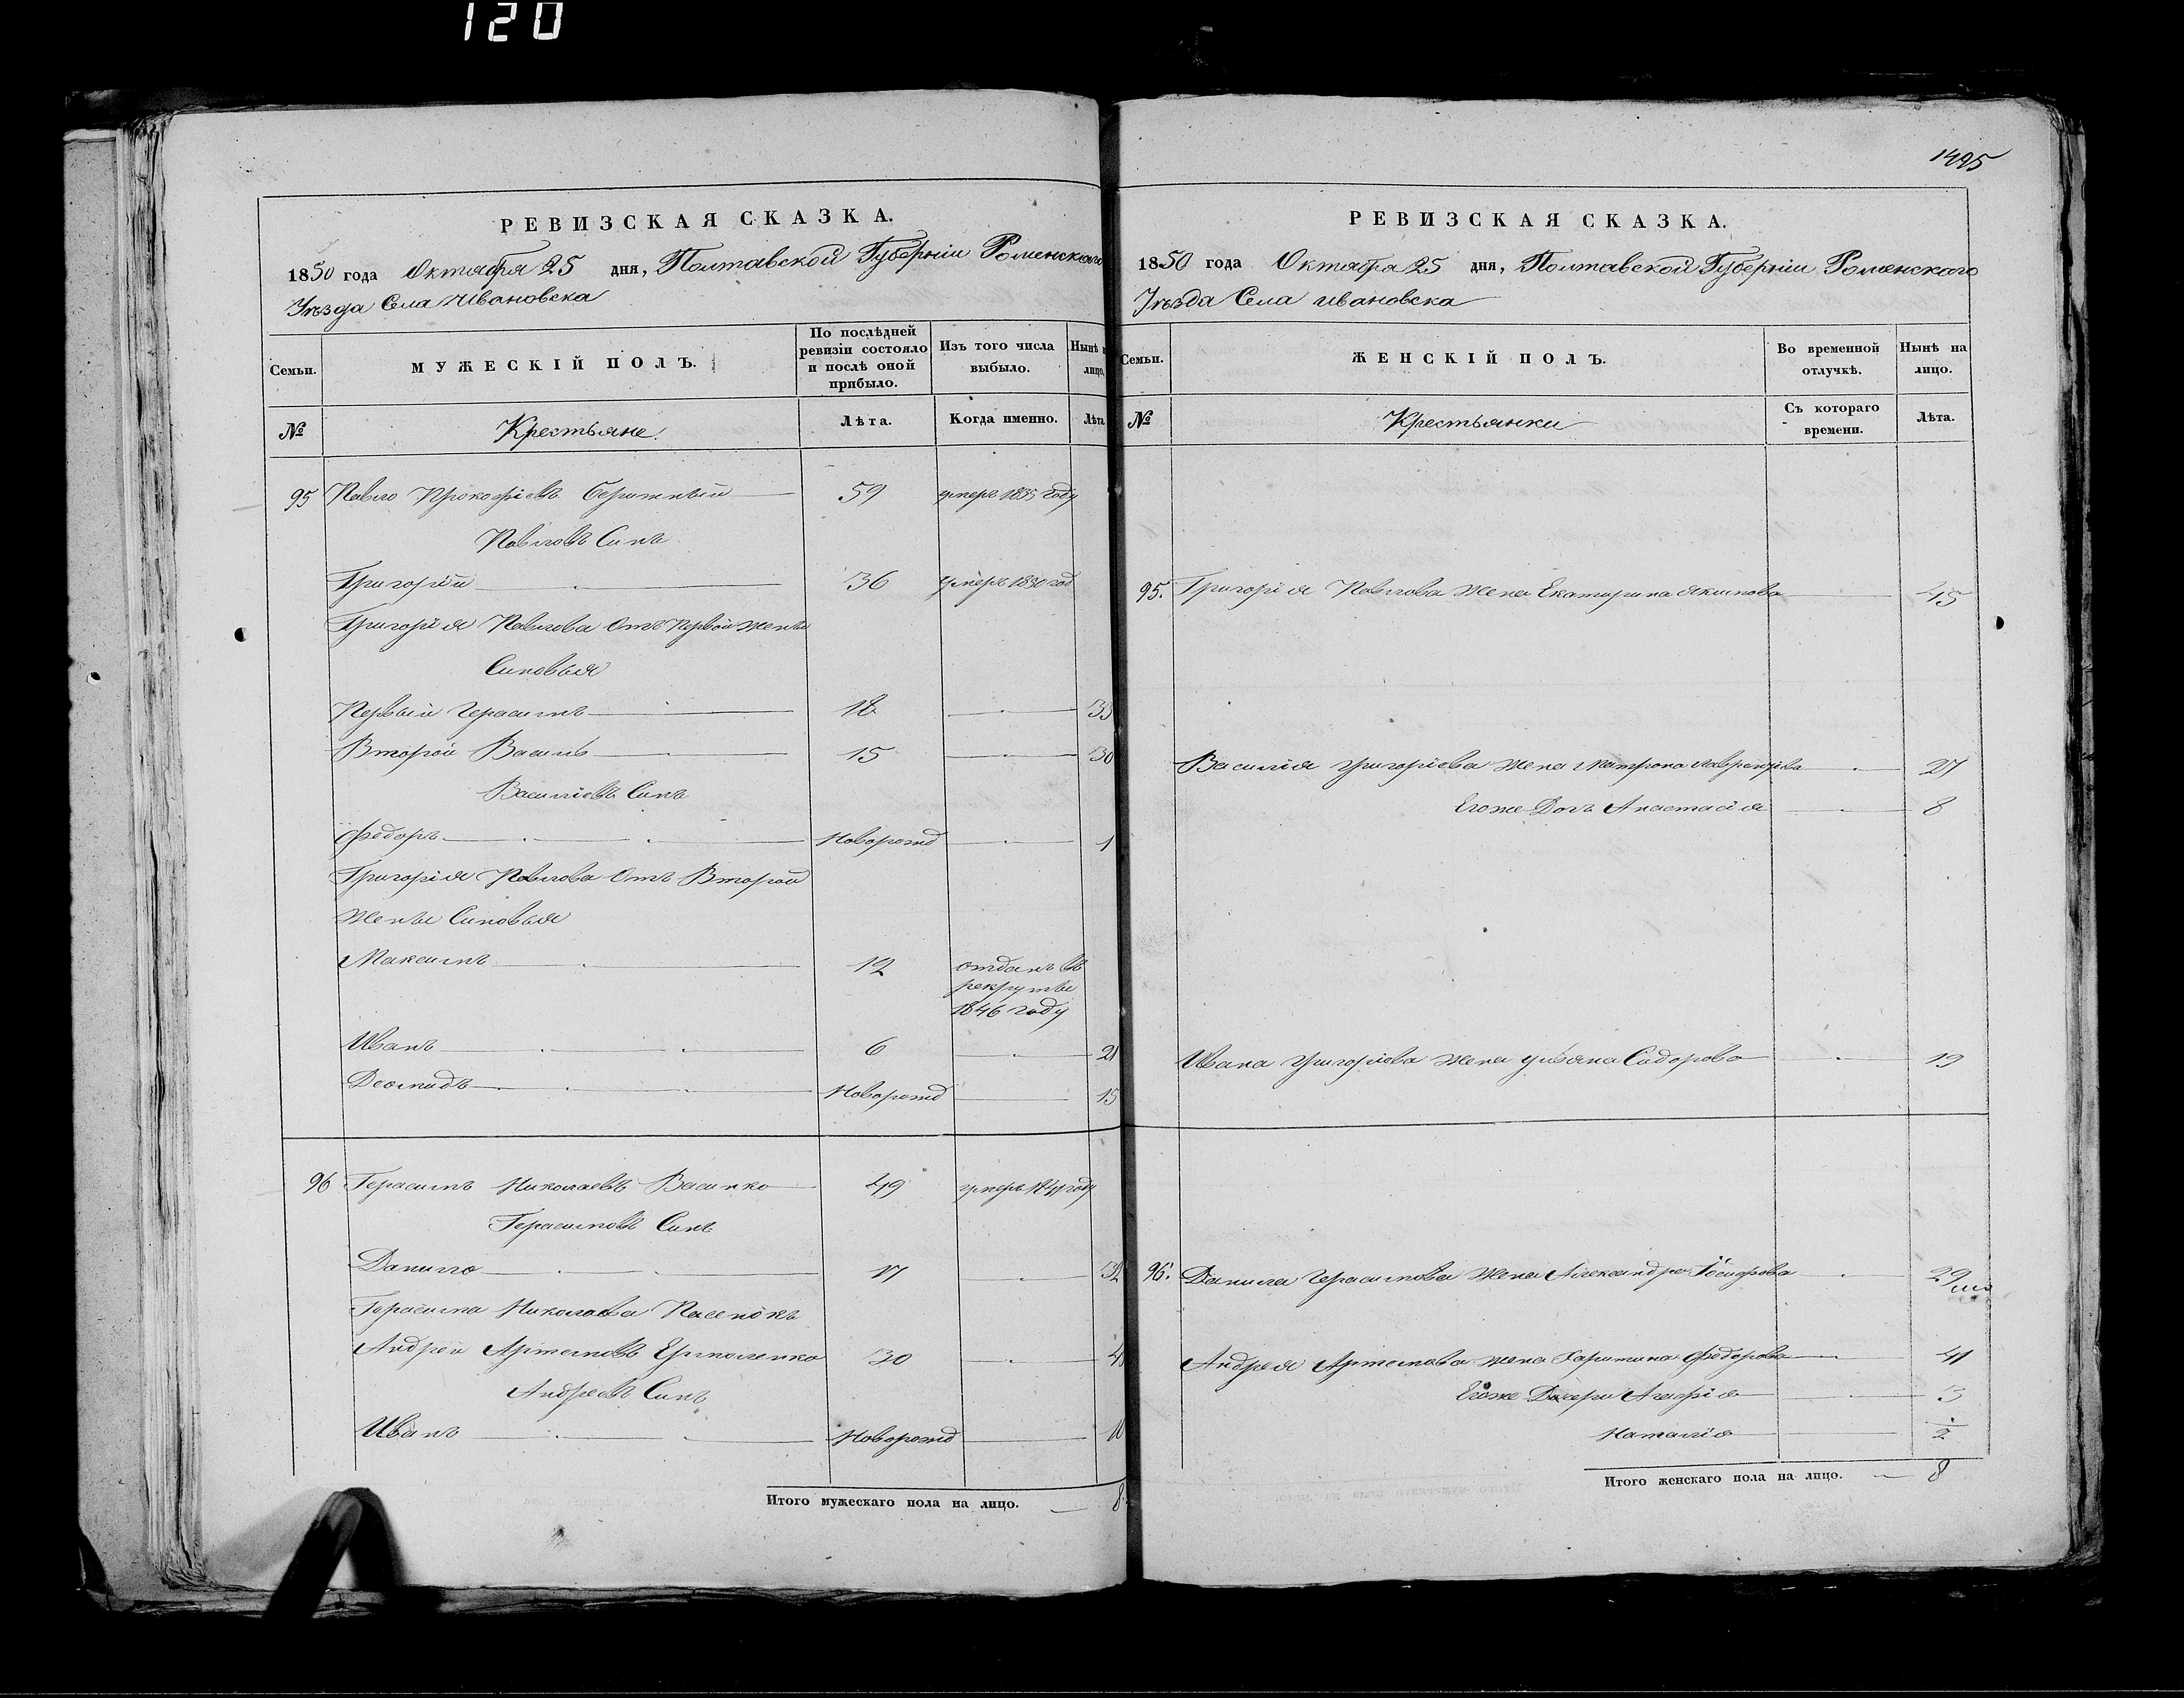 120
РЕВИЗСКАЯ СКАЗКА.
1850 года Октября 25 дня, Полтавской Губерніи Роменскаго
Уѣзда Села Ивановска
Семьи. МУЖЕСКІЙ ПОЛЪ. По послѣдней ревизіи состояло и послѣ оной прибыло. Изъ того числа выбыло. Нынѣ лицо,
№ Крестьяне. Лѣта. Когда именно. Лѣта
95 Павло Прокофіевъ 59 умеръ 1835 году
Павловъ Синъ
Григорій 36 умеръ 1850 год
Григорія Павлова Отъ Первой жены
Синовья
Первый Герасимъ 18 33
Второй Василь 15 30
Василіевъ Синъ
Федоръ Новорожд 1
Григорія Павлова Отъ Второй
жены Синовья
Максимъ 12 отданъ въ
рекруты
1846 году
Иванъ 6 21
Деомидъ Новорожд 15
96 Герасимъ Николаевъ Васинко 49 умеръ 1841 году
Герасимовъ Синъ
Данило 17 32
Герасима Николаева Пасенокъ
Андрей Артемовъ Ермоленко 30
Андреевъ Синъ
Иванъ Новорожд
Итого мужескаго пола на лицо. 8
1495
РЕВИЗСКАЯ СКАЗКА.
1850 года Октября 25 дня, Полтавской Губерніи Роменскаго
Уѣзда Села ивановска
Семьи. ЖЕНСКІЙ ПОЛЪ. Во временной отлучкѣ. Нынѣ на лицо.
№ Крестьянки Съ котораго времени. Лѣта.
95. Григорія Павлова жена Екатирина Якимова 45
Василія Григоріева жена Матрона 27
Егоже Дочь Анастасія 8
Ивана Григоріева жена Уліяна Сидорова 19
96. Данила Герасимова жена Александра 29
Андрея Артемова жена Харитина Федорова 41
Егоже Дочери Агафія 3
Наталія 2
Итого женскаго пола на лицо. 8